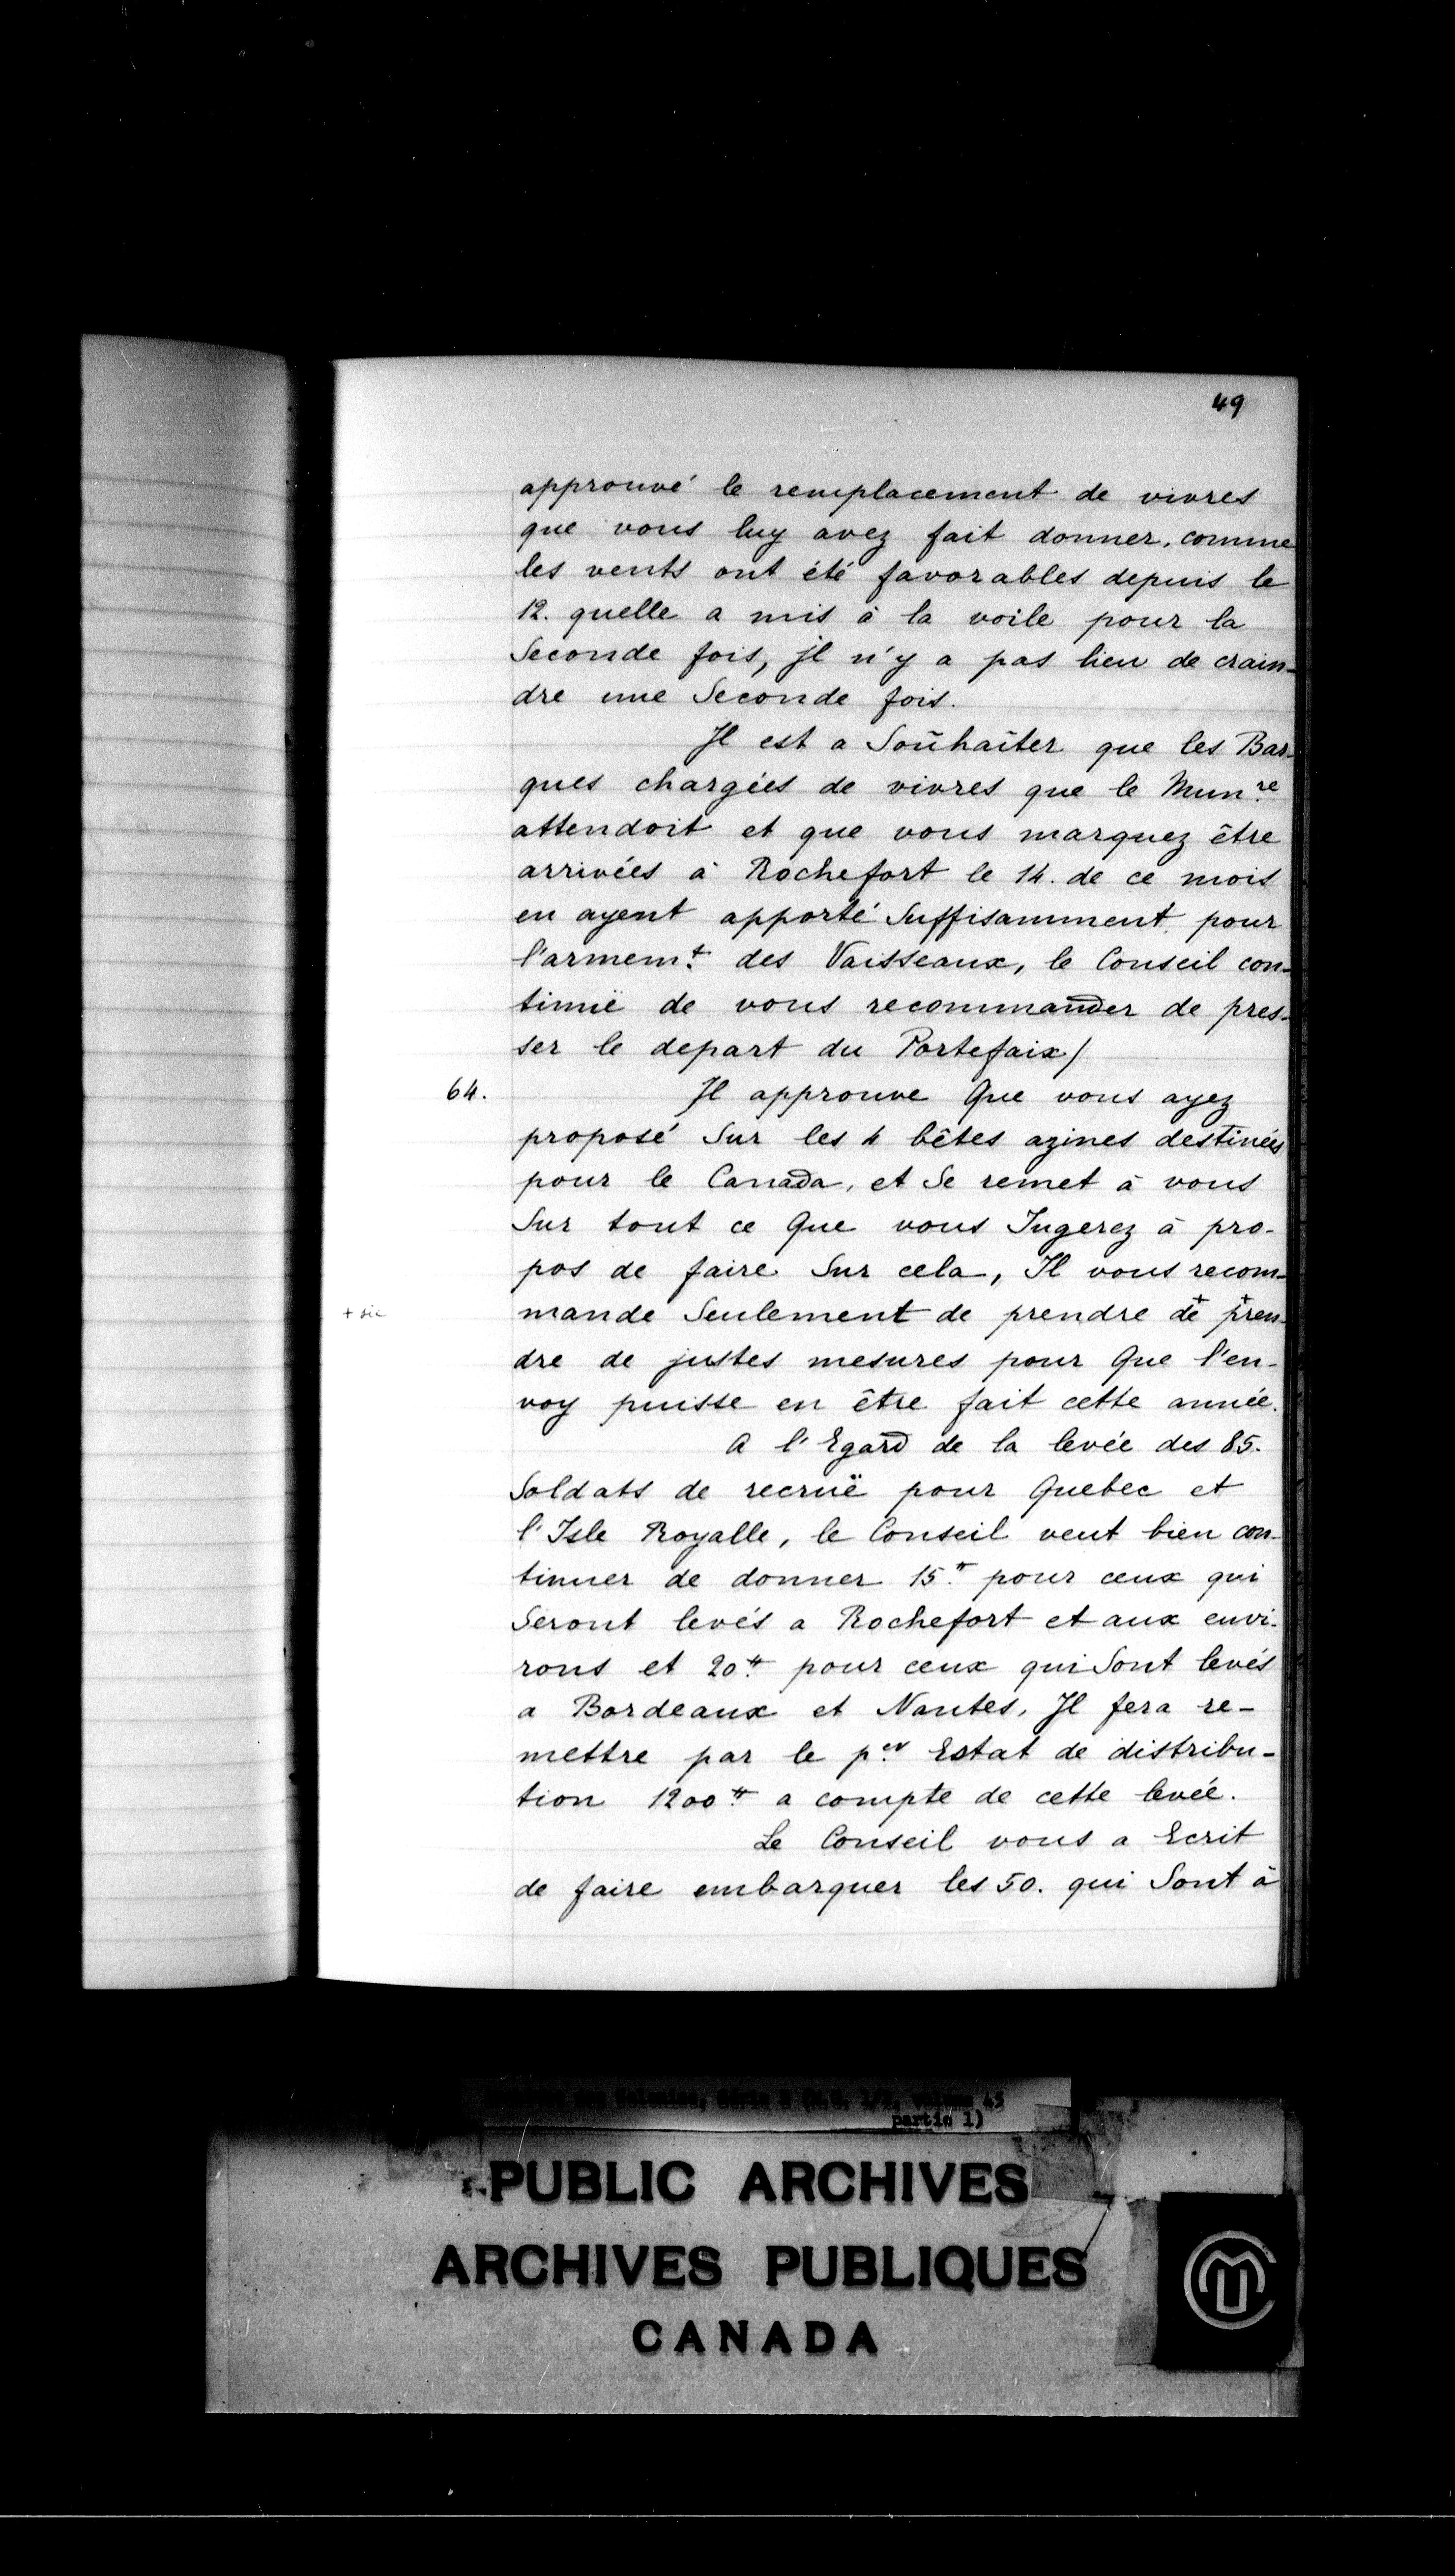 49
approuvé le remplacement de vivres
que vous luy avez fait donner, comme
les vents ont été favorables depuis le
12. quelle a mis à la voile pour la
Seconde fois, jl n'y a pas lieu de crain-
dre une Seconde fois.
Jl est a Souhaiter que les Bar-
ques chargées de vivres que le Mun.re
attendoit et que vous marquez être
arrivées à Rochefort le 14. de ce mois
en ayent apporté Suffisamment pour
l'armem.t des Vaisseaux, le Conseil con-
tinuë de vous recommander de pres-
ser le depart du Portefaix/
64. Jl approuve Que vous ayez
proposé Sur les 4 bêtes azines destinées
pour le Canada, et Se remet à vous
Sur tout ce Que vous Jugerez à pro-
pos de faire Sur cela, Il vous recom-
+ sic mande Seulement de prendre de + pren + -
dre de justes mesures pour Que l'en-
voy puisse en être fait cette année.
A l'Egard de la levée des 85.
Soldats de recruë pour Quebec et
l'Isle Royalle, le Conseil veut bien con-
tinuer de donner 15.# pour ceux qui
Seront levés a Rochefort et aux envi-
rons et 20.# pour ceux qui Sont levés
a Bordeaux et Nantes, Jl fera re-
mettre par le p.er Estat de distribu-
tion 1200.# a compte de cette levée.
Le Conseil vous a Ecrit
de faire embarquer les 50. qui Sont à
partie 1)
PUBLIC ARCHIVES
ARCHIVES PUBLIQUES
CANADA